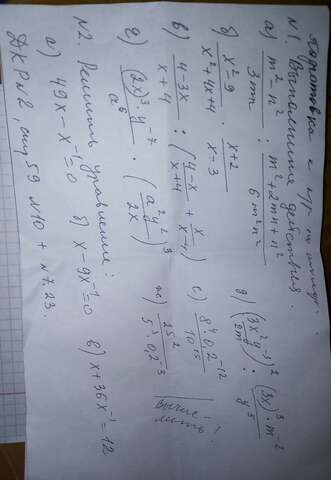 Подготовка к к/р по алгебре.
№1. Выполните действия.
а) \frac{m^2-n^2}{3m} : \frac{m^2+2mn+n^2}{6m^2n^2}
б) \frac{x^2-9}{x^2+4x+4} \cdot \frac{x+2}{x-3}
в) \frac{4-3x}{x+4} : (\frac{4-x}{x+4} + \frac{x}{x-4})
г) \frac{(2x)^3 \cdot y^{-7}}{a^6} \cdot (\frac{a^2y^2}{2x})^3
д) (\frac{3x^2y^{-3}}{2m})^2 : \frac{(3x)^3 \cdot m^{-2}}{y^5}
е) \frac{8^4 \cdot 0,2^{-12}}{10^{15}}
ж) \frac{25^2}{5^3 \cdot 0,2^{-3}}
Вычислить!
№2. Решить уравнение:
а) 49x - x^{-1} = 0 б) x - 9x^{-1} = 0 в) x + 36x^{-1} = 12
ДКР №2, стр 59 №10 + №7.23.